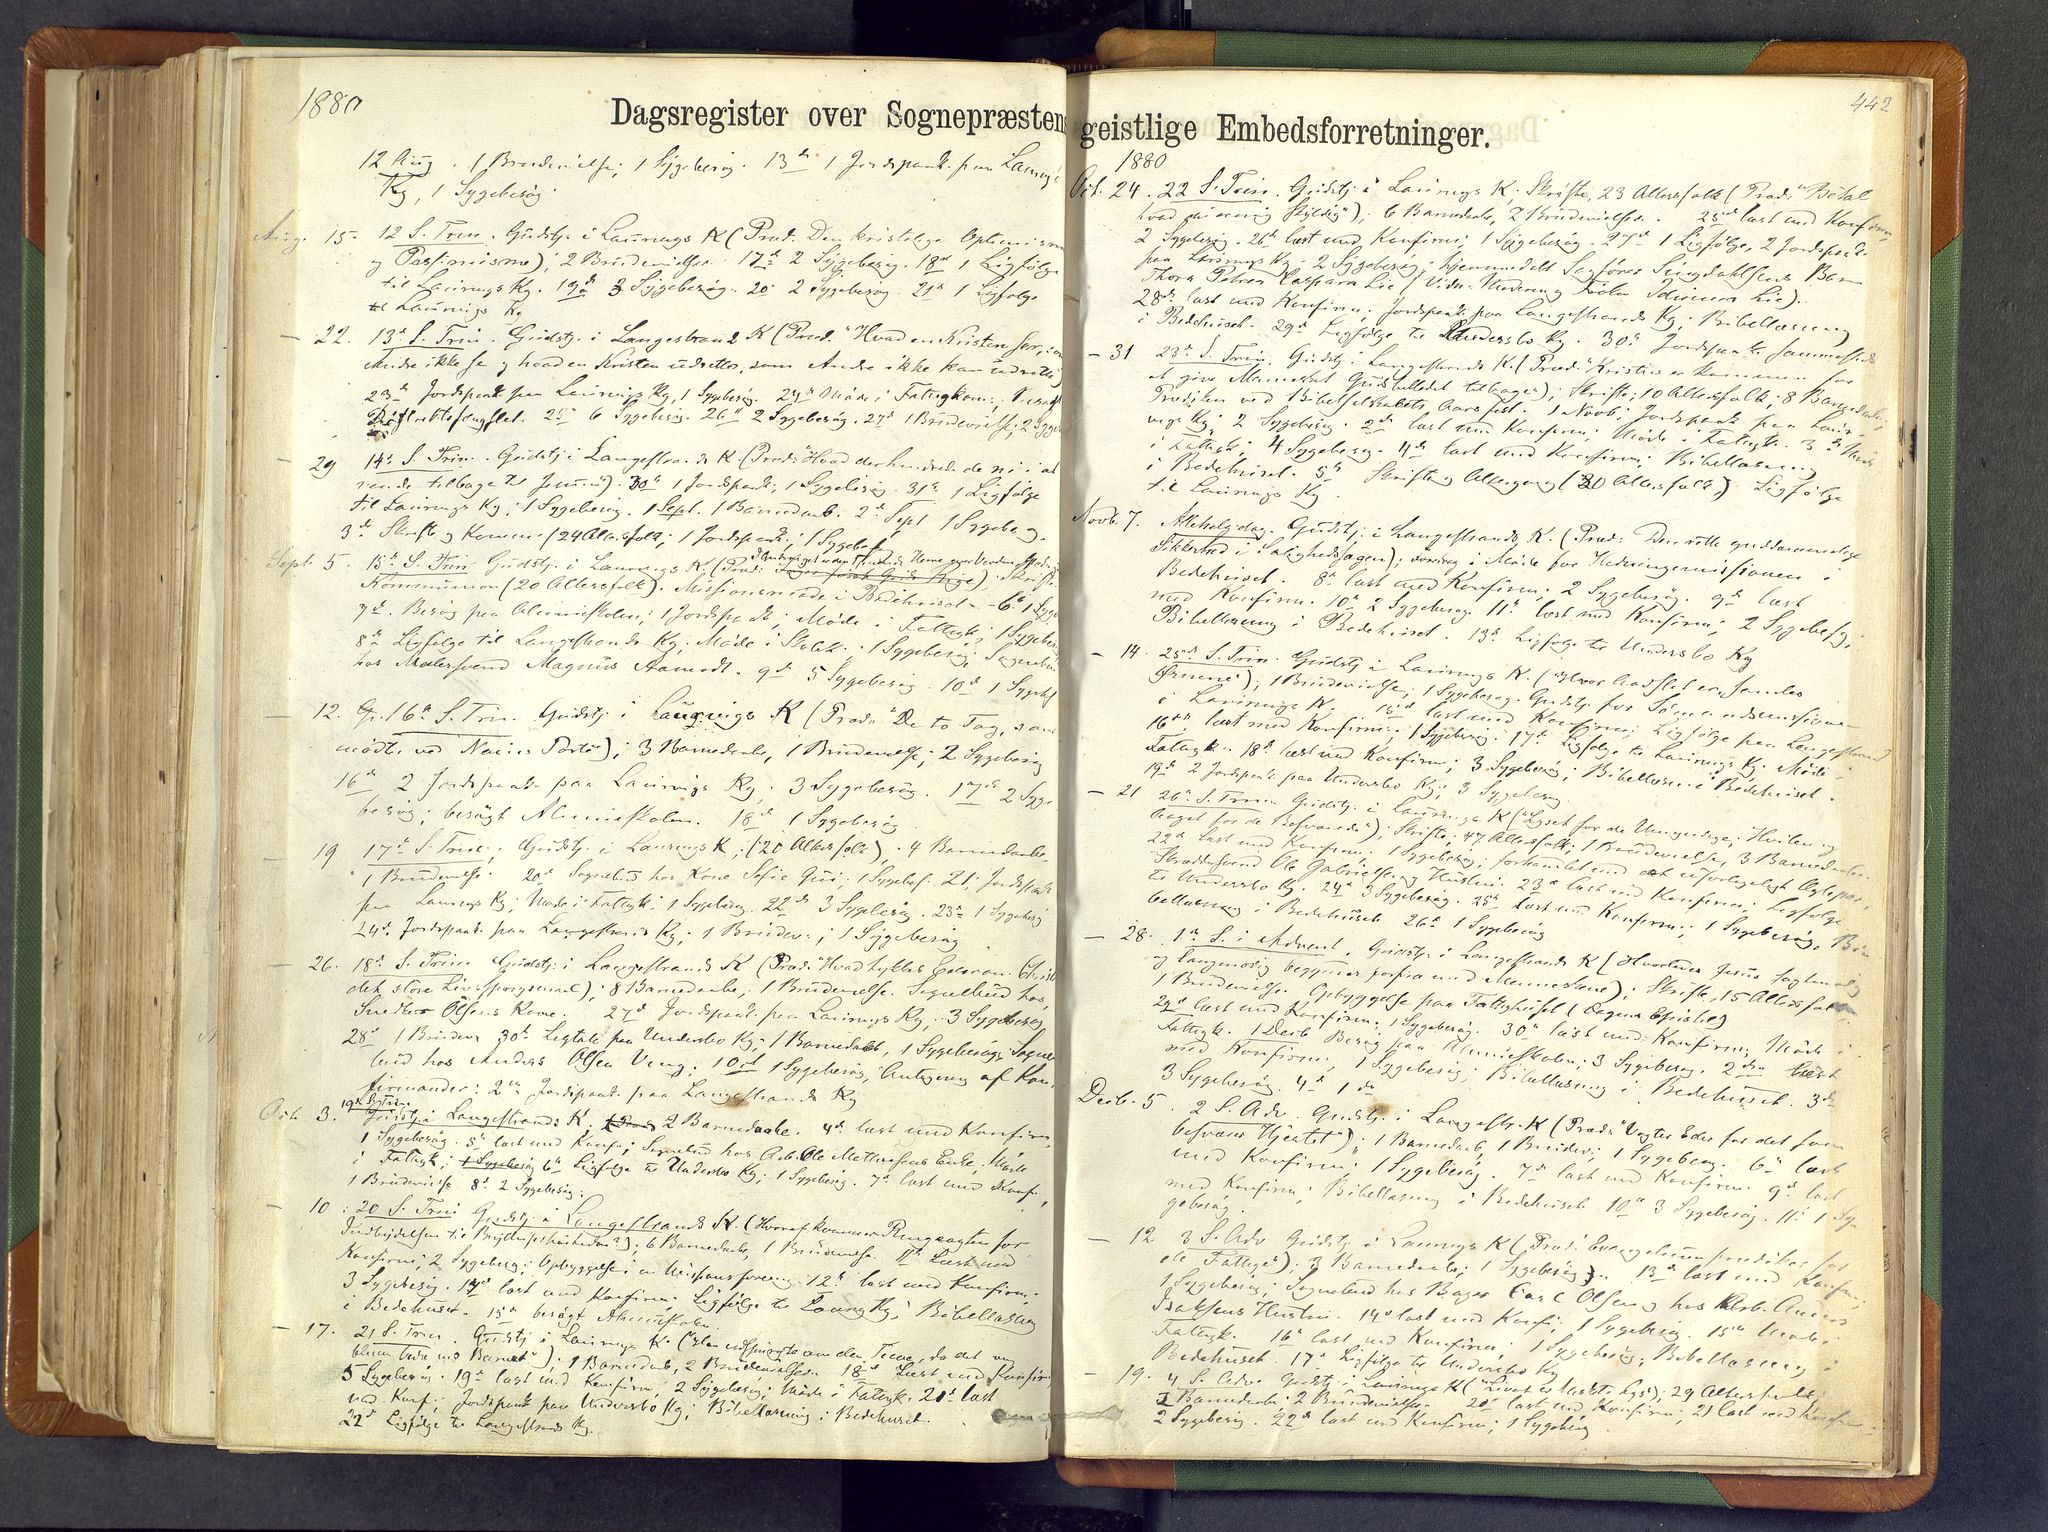 1880
Dagsregister over Sognepræstens
12 Aug. 1 Brudevielse; 1 Sygebesøg. 13de 1 Jordspaak. paa Laurvigs
Kg, 1 Sygebesøg.
Aug. 15. 12 S. Trin. Gudstj. i Laurvigs K (Præd. Den kristelige Optimisme
og Pessimisme); 2 Brudevielser. 17de 2 Sygebesøg. 18de 1 Ligfølge
til Laurvigs Kg. 19de 3 Sygebesøg. 20 2 Sygebesøg. 21de 1 Ligfølge
til Laurvigs Kg
— 22. 13de S. Trin. Gudstj. i Langestrands K (Præd. "Hvad en Kristen ser, som
Andre ikke se og hvad en Kristen udretter, som Andre ikke kan udrette")
23de Jordspaak. paa Laurvigs Kg, 1 Sygebesøg. 24de Møde i Fattigkom.;
25de 6 Sygebesøg. 26de 2 Sygebesøg. 27de 1 Brudevielse; 2 Sygeb
— 29 14de S. Trin. Gudstj. i Langestrands K. (Præd. "Hvad der hindrede de ni i at
vende tilbage til Jesum"). 30te 1 Jordspaak.; 1 Sygebesøg. 31te 1 Ligfølge
til Laurvigs Kg; 1 Sygebesøg. 1 Sept. 1 Barnedaab. 2de Sept 1 Sygebesøg.
3de Skrifte og Kommun (24 Altersfolk; 1 Jordspaak.; 1 Sygebesøg
Sept. 5. 15de S. Trin Gudstj. i Laurvigs K. (Præd.
Kommunion (20 Altersfolk). Missionsmøde i Bedehuset. 6te 1 Syge
7de. Besøg paa Almueskolen; 1 Jordspaak.; Møde i Fattigk; 1 Sygebesøg
8de Ligfølge til Langestrands Kg; Møde i Skolek. 1 Sygebesøg; Sognebud
hos Malersvend Magnus Aamodt. 9de 5 Sygebesøg 10de 1 Sygebes
— 12. 16de S. Trin. Gudstj. i Laurvigs K (Præd. "De to Tog, som
mødtes ved Nains Port"); 3 Barnedaab, 1 Brudevielse; 2 Sygebesøg
16de 2 Jordspaak. paa Laurvigs Kg. 3 Sygebesøg. 17de 2 Syge
besøg; besøgt Almueskolen. 18de 1 Sygebesøg
— 19 17de S. Trin.; Gudstj. i Laurvigs K; (20 Altersfolk), 4 Barnedaabe
1 Brudevielse. 20de Sognebud hos Kone Sofie; 1 Sygebes. 21: Jordspaak
paa Laurvigs Kg; Møde i Fattigk; 1 Sygebesøg. 22de 3 Sygebesøg. 23de 1 Sygebesøg
24de. Jordspaak. paa Langestrands Kg; 1 Brudev.; 1 Sygebesøg
— 26. 18de S. Trin. Gudstj. i Langestrands K (Præd. "Hvad tykkes Eder om Christ
det store Livsspørgsmaal); 8 Barnedaabe, 1 Brudevielse. Sognebud hos
Snedker Olsens Kone. 27de Jordspaak. paa Laurvigs Kg; 3 Sygebesøg
28de 1 Brudev. 30te Ligtale paa Undersbo Kg; 1 Barnedaab, 1 Sygebesøg; Sogne-
bud hos Anders Olsen Veng; 1 Oct 1 Sygebesøg, Antegning af Kon-
firmander: 2den Jordspaak. paa Langestrands Kg
Oct. 3. 19de S. Trin. Gudstj. i Langestrands K. 2 Barnedaabe. 4de læst med Konfirm,
1 Sygebesøg. 5te læst med Konf.; Sognebud hos Arb. Ole Mathiesens Enke, Møde
i Fattigk; 6te Ligfølge til Undersbo Kg; 1 Sygebesøg. 7de læst med Konf.,
1 Brudevielse 8de 2 Sygebesøg.
— 10: 20 S. Trin Gudstj. i Langestrands K. (Hvoraf kommer Ringeagten for
Indbydelsen til Bryllupshøitiden?); 6 Barnedaabe, 1 Brudevielse. 11te læst med
Konfirm; 2 Sygebesøg; Opbyggelse i en Missionsforening. 12te læst med Konfirm.;
3 Sygebesøg. 14de læst med Konfirm. Ligfølge til Laurv Kg; Bibellæsning
i Bedehuset. 15de besøgt Almueskolen.
— 17. 21 S. Trin. Gudstj. i Laurvigs K. (Han udspurgte om den Time, da det var
blevet bedre med Barnet"); 1 Barnedaab, 2 Brudevielser. 18de læst med Konfirm,
5 Sygebesøg. 19de læst med Konfirm; 2 Sygebesøg; Møde i Fattigk. 21de læst
med Konf.; Jordspaak paa Undersbo Kg; Bibellæsning i Bedehuset.
22de Ligfølge til Langestrands Kg.
442
geistlige Embedsforretninger.
1880
Oct. 24. 22 S. Trin. Gudstj. i Laurvigs K; Skrifte, 23 Altersfolk (Præd. "Betal
hvad du er mig skyldig"); 6 Barnedaabe, 2 Brudevielser. 25de læst med Konfirm,
2 Sygebesøg. 26de læst med Konfirm; 1 Sygebesøg. 27de 1 Ligfølge, 2 Jordspaak
paa Laurvigs Kg. 2 Sygebesøg; hjemmedøbt Sagfører Barn
Thora Petrea Caspara Lie
28de læst med Konfirm; Jordspaak paa Langestrands Kg; Bibellæsning
i Bedehuset. 29de Ligfølge til Undersbo Kg. 30te Jordspaak sammesteds
— 31 23de S. Trin. Gudstj. i Langestrands K. (Præd. Kristus er kommen for
at give Mennesket Gudsbilledet tilbage); Skrifte; 10 Altersfolk; 8 Barnedaabe;
Prædiken ved Bibelselskabets Aarsfest. 1 Novb; Jordspaak paa Laur-
vigs Kg; 2 Sygebesøg. 2de læst med Konfirm; Møde i Fattigk. 3de Møde
i Fattigk; 4 Sygebesøg. 4de læst med Konfirm; Bibellæsning
i Bedehuset. 5te Skrifte og Altergang (20 Altersfolk) Ligfølge
til Laurvigs Kg.
Novb. 7. Allehelg.dag. Gudstj. i Langestrands K. (Præd. Den rette guddommelige
Sikkerhed i Salighedssagen); Foredrag i Møde for Hedningemissionen i
Bedehuset. 8de læst med Konfirm; 2 Sygebesøg. 9de læst
med Konfirm. 10de 2 Sygebesøg 11te læst med Konfirm; 2 Sygebesøg;
Bibellæsning i Bedehuset. 13de Ligfølge til Undersbo Kg
— 14. 25de S. Trin. Gudstj. i Laurvigs K. ("Hvor Aadslet er, samles
Ørnene"); 1 Brudevielse; 1 Sygebesøg. Gudstj. for Sømandsmissionen
i Laurvigs K. 15de læst med Konfirm; Ligfølge paa Langestrand
16de læst med Konfirm; 1 Sygebesøg. 17de Ligfølge til Laurvigs Kg. Møde i
Fattigk. 18de læst med Konfirm; 3 Sygebesøg; Bibellæsn. i Bedehuset.
19de 2 Jordspaak paa Undersbo Kg; 3 Sygebesøg
— 21 26de S. Trin. Gudstj. i Laurvigs K (Aaget for de Ubøielige; Hvilen og
Aaget for de Besværede"); Skrifte; 47 Altersfolk; 1 Brudevielse, 3 Barnedaabe.
22de læst med Konfirm; 1 Sygebesøg; forhandlet med det uforligeligt Ægtepar,
Skræddersvend Ole Gabrielsen og Hustru. 23de læst med Konfirm; Ligfølge
til Undersbo Kg. 24de 3 Sygebesøg. 25de læst med Konfirm; 1 Sygebesøg. Bi-
bellæsning i Bedehuset 26de 1 Sygebesøg
— 28. 1ste S. i Advent. Gudstj. i Langestrands K (Hvorledes Jesus sagtmodig
og langmodig begynder forfra med Menneskene); Skrifte, 15 Altersfolk
1 Brudevielse. Opbyggelse paa Fattighuset (Dagens Epistel)
29de læst med Konfirm; 1 Sygebesøg. 30te læst med Konfirm; Møde i
Fattigk. 1 Decb Besøg paa Almueskolen; 3 Sygebesøg. 2den læst
med Konfirm, 1 Sygebesøg; Bibellæsning i Bedehuset. 3de
3 Sygebesøg. 4de 1 do
Decb. 5. 2 S. Adv. Gudstj. i Langestr. K (Præd. "Vogter Eder for det som
besværer Hjertet"); 1 Barnedaab, 1 Brudev; 1 Sygebesøg. 6te læst
med Konfirm; 1 Sygebesøg. 7de læst med Konfirm. 9de læst
med Konfirm; Bibellæsning i Bedehuset 10de 3 Sygebesøg. 11te 1 Sy-
gebesøg.
— 12 3 S. Adv Gudstj. i Laurvigs K (Præd. Evangelium prædikes for
de Fattige"); 3 Barnedaab; 1 Sygebesøg. 13de læst med Konfirm;
1 Sygebesøg; Sognebud hos Bager Carl Olsen og hos Arb. Anders
Isaksens Hustru. 14de læst med Konf; 1 Sygebesøg. 15de Møde i
Fattigk. 16de læst med Konfirm; 1 Sygebesøg, Bibellæsning i
Bedehuset. 17de Ligfølge til Undersbo Kg
— 19. 4 S. Adv. Gudstj. i Laurvigs K ("Livet er Verdens Lys"); 29 Altersfolk;
Barnedaabe; 2 Brudevielse. 20de læst med Konfirm; 21 læst med Konfirm
2 Sygebesøg. 22de læst med Konfirm; 1 Sygebesøg